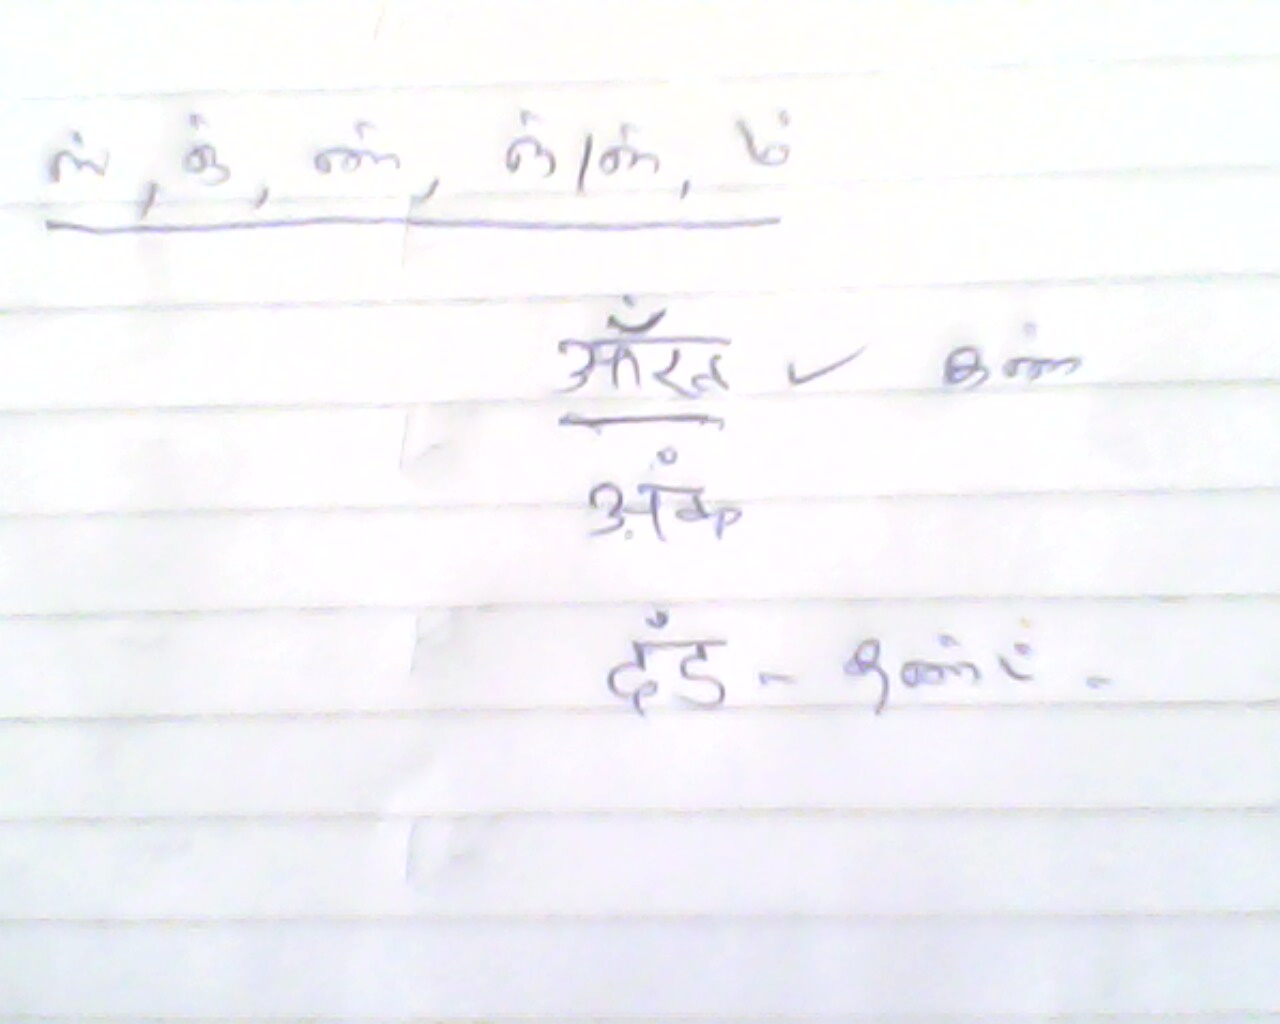 ங், ஞ், ண், ந்/ன், ம்
औरत ✓ கண்
अंक
दंड - தண்ட் -